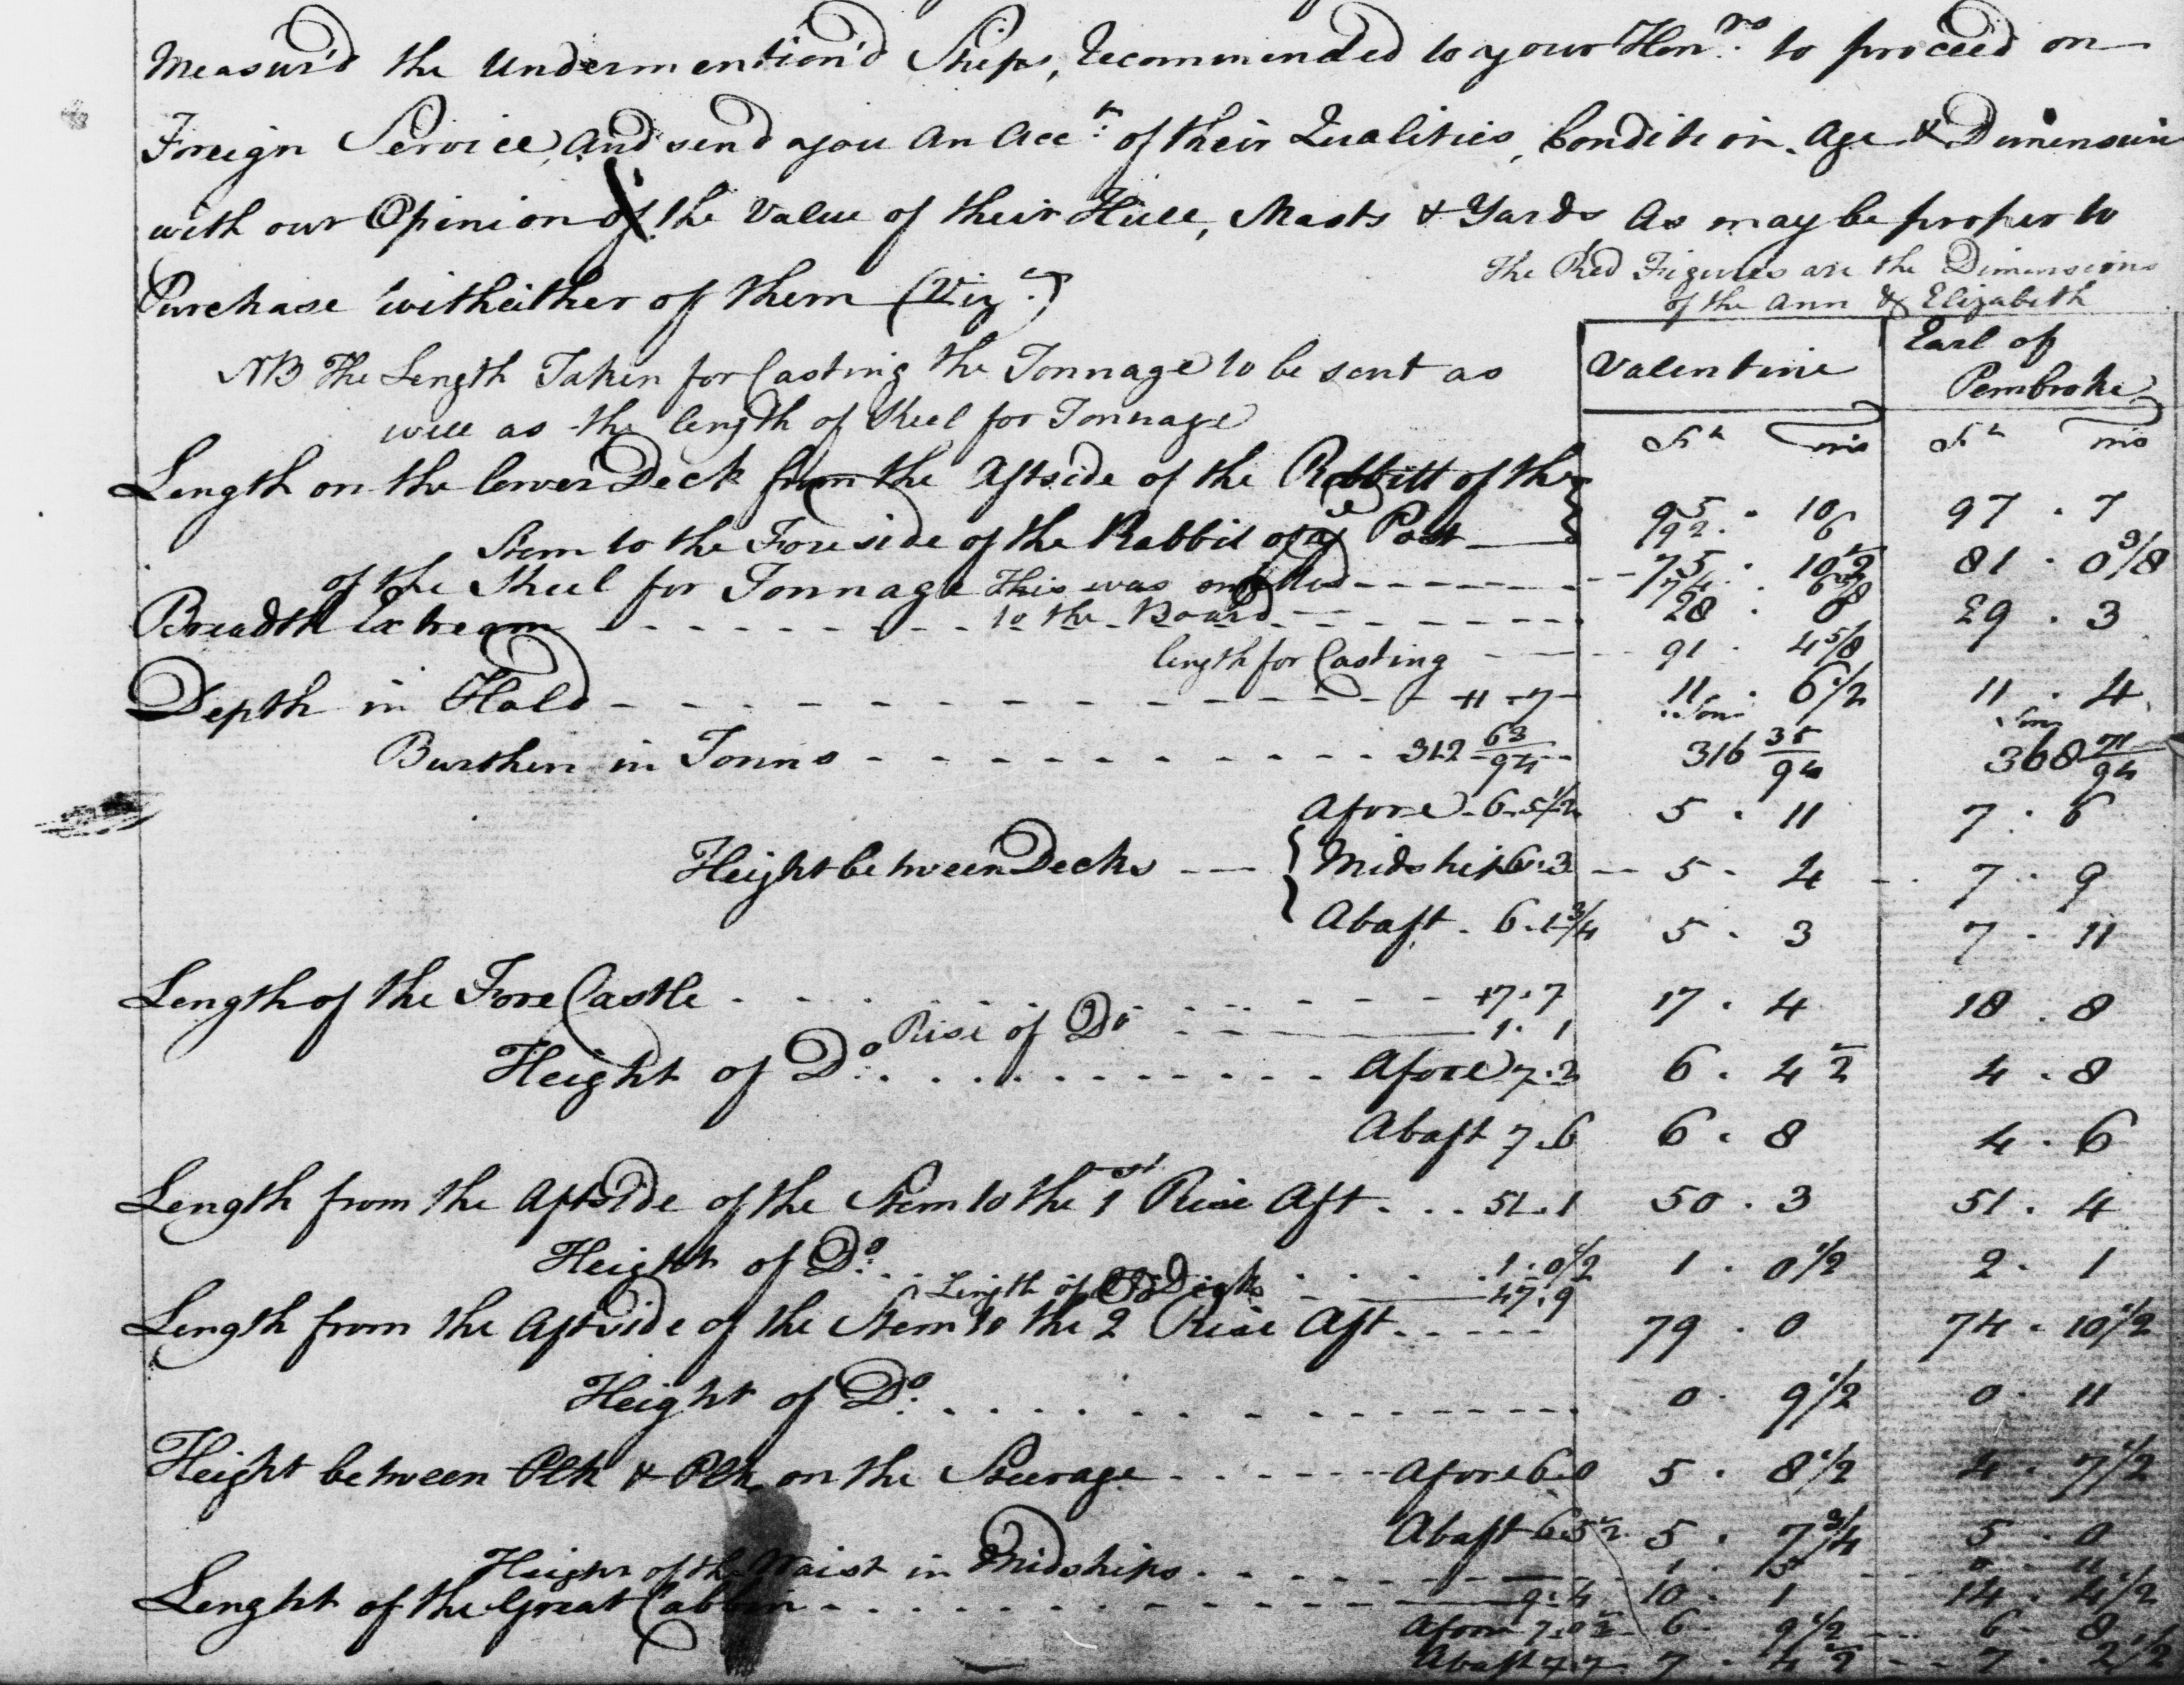 Measur'd the Undermention'd Ships, Recommended to your Hon.rs to proceed on
Foreign Service, and send you an Acc.t of their Qualities, Condition, Age & Dimensions
with our Opinion of the Value of their Hull, Masts & Yards as may be proper to
Purchase witheither of them (Viz.t)
The Red Figures are the Dimensions
of the Ann & Elizabeth
NB The Length Taken for Casting the Tonnage to be sent as
well as the length of Keel for Tonnage
Valentine Earl of Pembroke
Ft Ins Ft Ins
Length on the lower Deck from the Aftside of the Rabbitt of the
Stem to the Foreside of the Rabbit of ye Post 95 . 10 97 . 7
92 . 6
of the Keel for Tonnage This was omitted 75 . 10 1/2 81 . 0 3/8
to the Board
Breadth Extream 28 . 8 29 . 3
length for Casting 91 . 4 5/8
Depth in Hold 11 . 7 11 . 6 1/2 11 . 4
Tons Tons
Burthen in Tonns 312 63/94 316 35/94 368 71/94
Afore 6 . 5 1/2 5 . 11 7 . 6
Height between Decks { Midships 6 . 3 5 . 4 7 . 9
Abaft . 6 . 1 3/4 5 . 3 7 . 11
Length of the Fore Castle 17 . 7 17 . 4 18 . 8
Rise of Do 1 . 1
Height of Do. Afore 7 . 2 6 . 4 1/2 4 . 8
Abaft 7 . 6 6 . 8 4 . 6
Length from the Aftside of the Stem to the 1st Rise Aft 51 . 1 50 . 3 51 . 4
Height of Do. 1 . 0 1/2 1 . 0 1/2 2 . 1
Length of 47 . 9
Length from the Aftside of the Stem to the 2 Rise Aft 79 . 0 74 . 10 1/2
Height of Do. 0 . 9 1/2 0 . 11
Height between Plk & Plk on the Steerage Afore 6 . 0 5 . 8 1/2 4 . 7 1/2
Abaft 6 . 5 1/2 5 . 7 3/4 5 . 0
Height of the Waist in Midships
Lenght of the Great Cabbin 9 . 4 10 . 1 14 . 4 1/2
Afore 6 . 9 1/2 6 . 8
Abaft 7 . 7 7 . 4 1/2 7 . 2 1/2